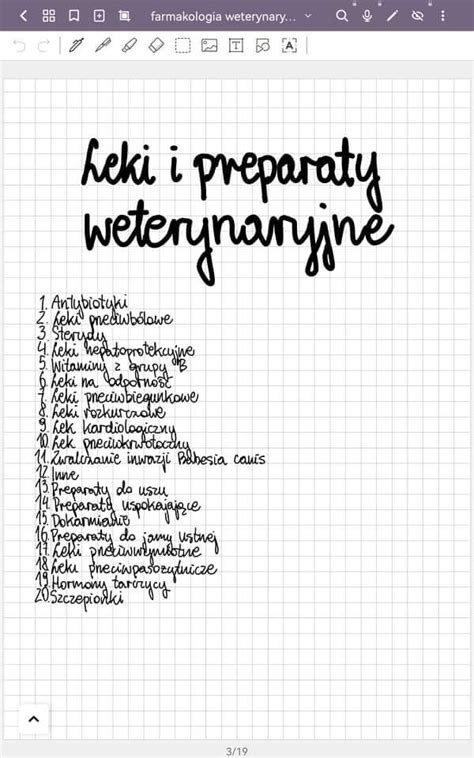 farmakologia weterynary...
Leki i preparaty
weterynaryjne
1. Antybiotyki
2. Leki przeciwbólowe
3. Sterydy
4. Leki hepatoprotekcyjne
5. Witaminy z grupy B
6. Leki na odporność
7. Leki przeciwbiegunkowe
8. Leki rozkurczowe
9. Lek kardiologiczny
10. Lek przeciwkrwotoczny
11. Zwalczanie inwazji Babesia canis
12. Inne
13. Preparaty do uszu
14. Preparaty uspokajające
15. Dokarmianie
16. Preparaty do jamy ustnej
17. Leki przeciwwymiotne
18. Leki przeciwpasożytnicze
19. Hormony tarczycy
20. Szczepionki
3/19